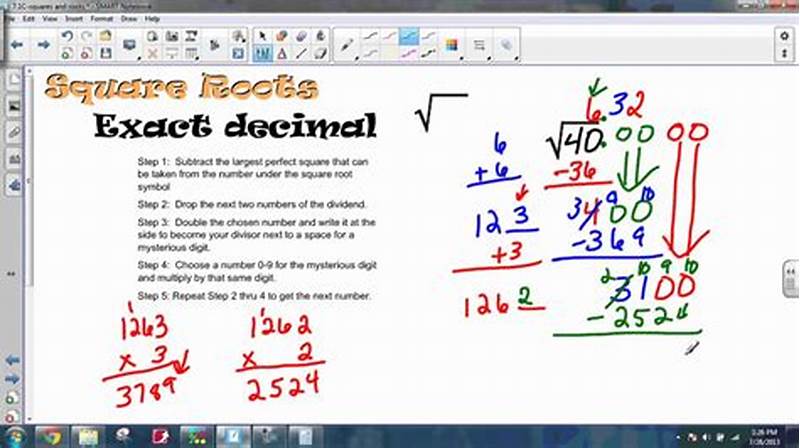 7.1C-squares and roots * - SMART Notebook
File Edit View Insert Format Draw Help
Square Roots
Exact decimal
Step 1: Subtract the largest perfect square that can
be taken from the number under the square root
symbol
Step 2: Drop the next two numbers of the dividend.
Step 3: Double the chosen number and write it at the
side to become your divisor next to a space for a
mysterious digit.
Step 4: Choose a number 0-9 for the mysterious digit
and multiply by that same digit.
Step 5: Repeat Step 2 thru 4 to get the next number.
1
1263
x 3
3789
1
1262
x 2
2524
√
6.32
√40.00 00
-36
6
+6
3 9 10
400
-369
123
+3
2 10 9 10
3100
-2524
1262
3:26 PM